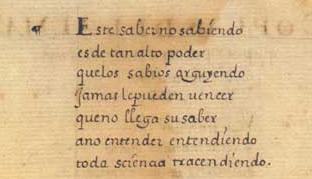 ¶ Este saber no sabiendo
es de tan alto poder
quelos sabios arguyendo
jamas lepueden vencer
queno llega su saber
ano entender entendiendo
toda sciencia tracendiendo.